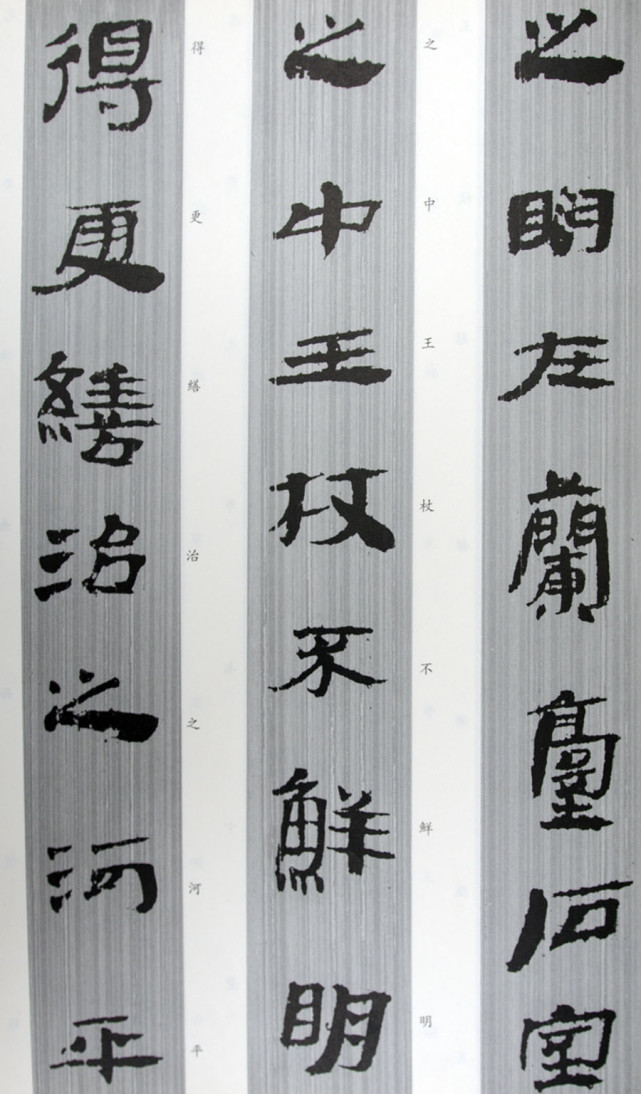 之明在蘭臺石室
之中王杖不鮮明
之中王杖不鮮明
得更繕治之河平
得更繕治之河平